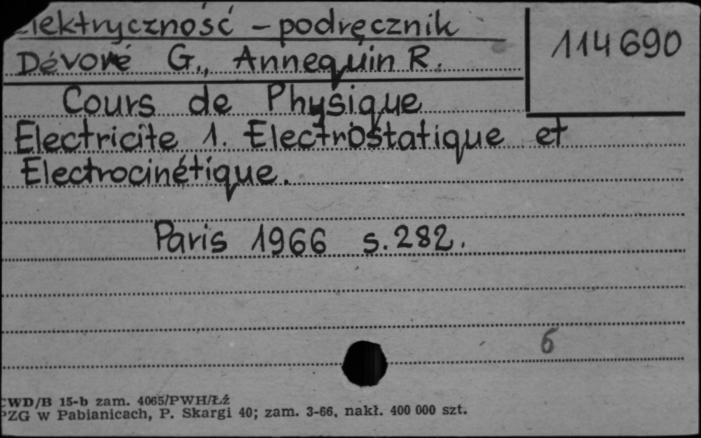 Elektryczność – podręcznik
114690
Dévoré G., Annequin R.
Cours de Physique
Electricite 1. Electrostatique et
Electrocinétique.
Paris 1966 s. 282.
6
CWD/B 15-b zam. 4065/PWH/Łź
PZG w Pabianicach, P. Skargi 40; zam. 3-66, nakł. 400 000 szt.